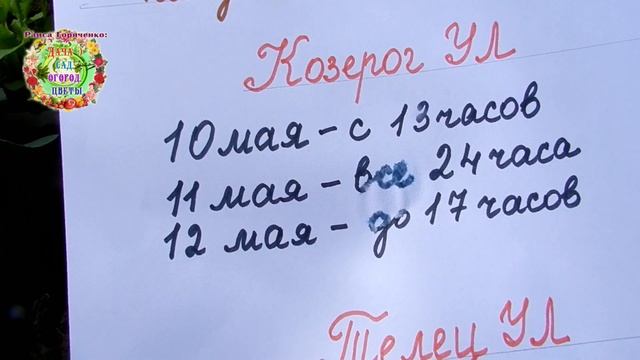 Раиса Горяченко:
ДАЧА
САД
ОГОРОД
ЦВЕТЫ
Козерог УЛ
10 мая - с 13 часов
11 мая - все 24 часа
12 мая - до 17 часов
Телец УЛ